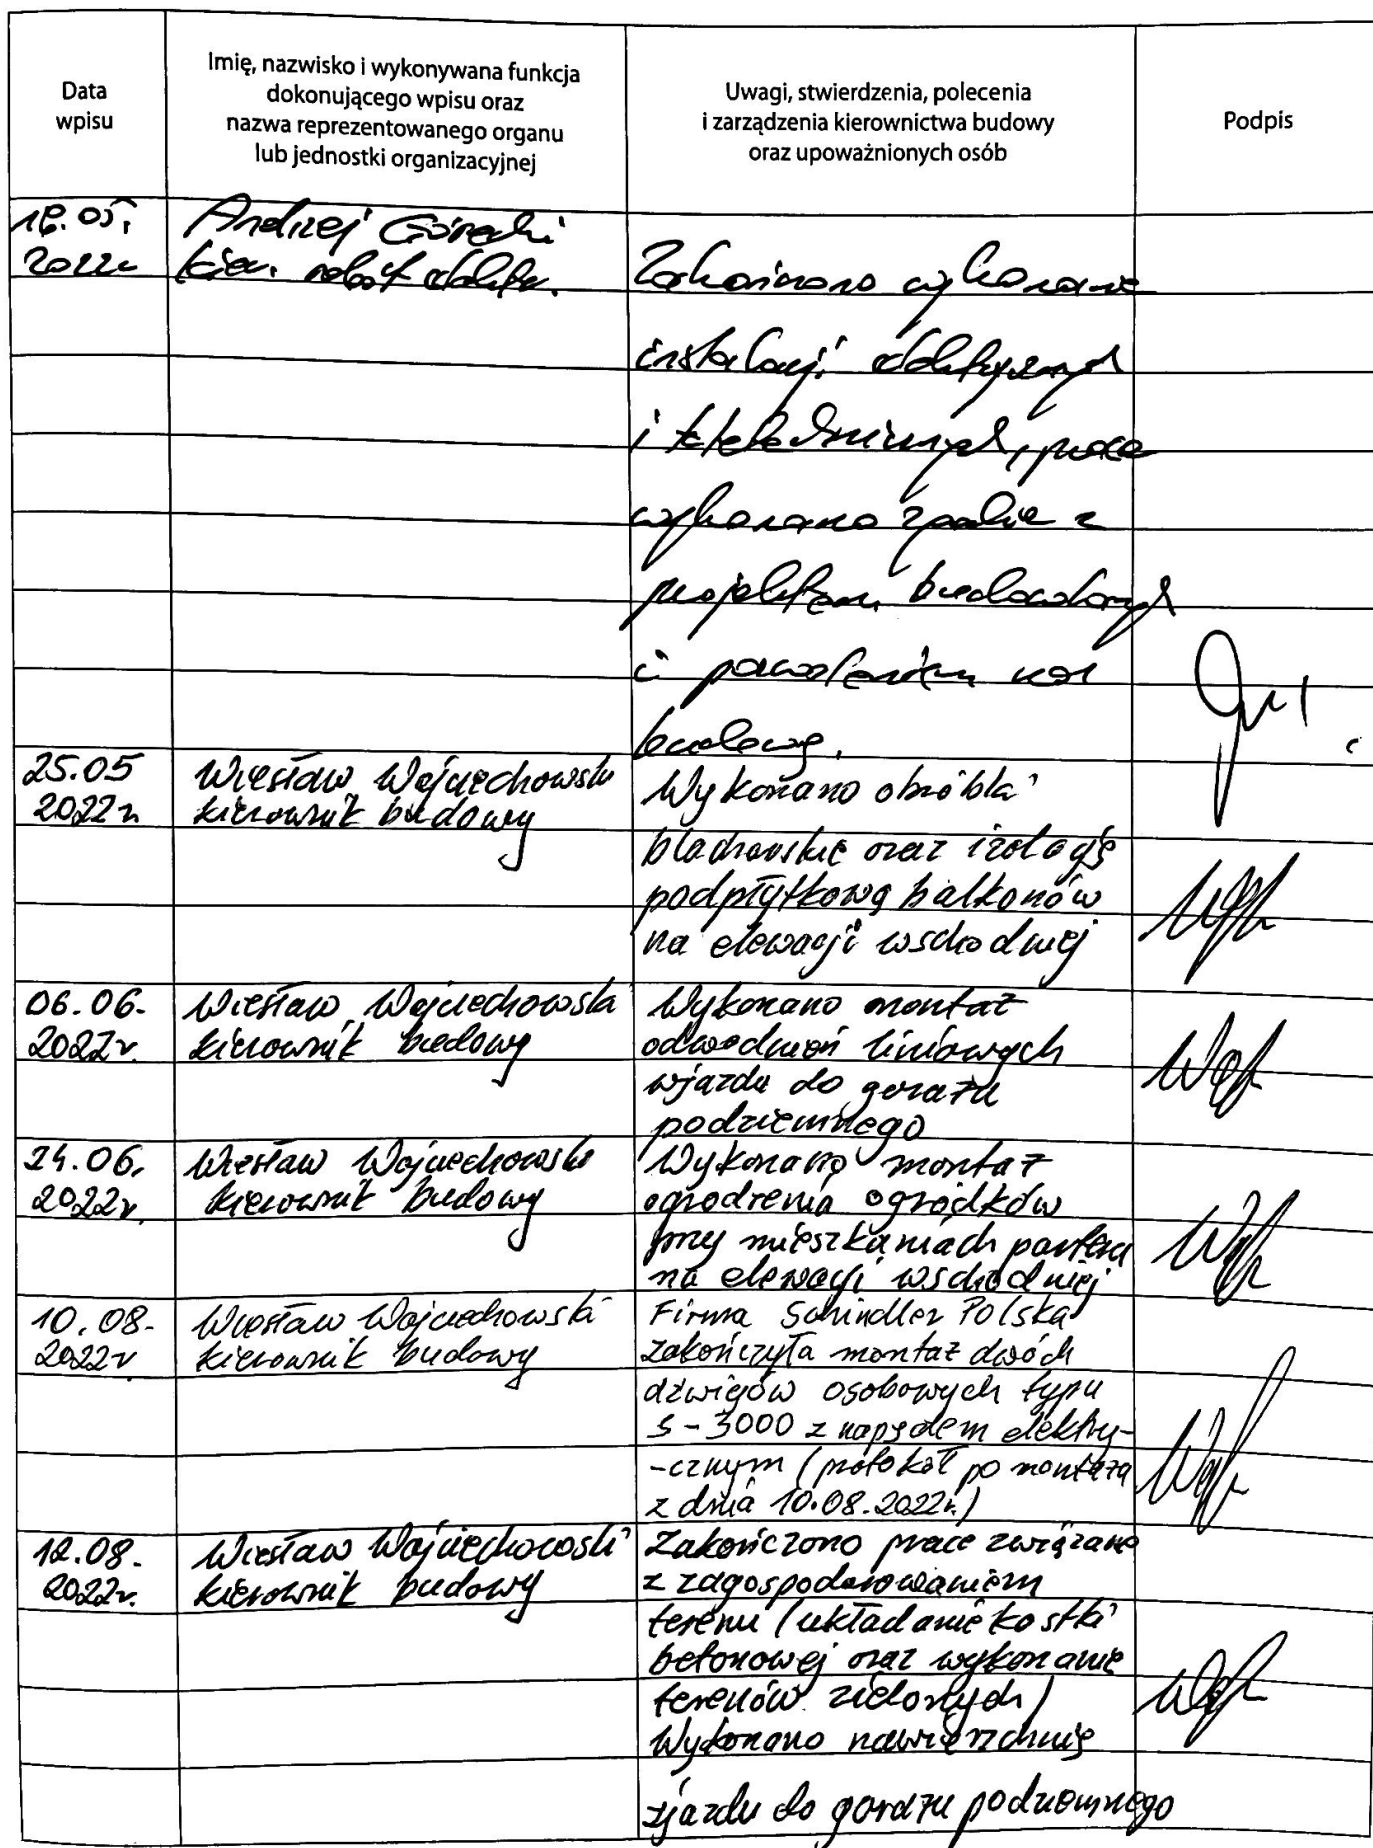 Data
wpisu
Imię, nazwisko i wykonywana funkcja
dokonującego wpisu oraz
nazwa reprezentowanego organu
lub jednostki organizacyjnej
Uwagi, stwierdzenia, polecenia
i zarządzenia kierownictwa budowy
oraz upoważnionych osób
Podpis
05.
2022r
Andrzej Górecki
kier. robót elektr.
Zakończono wykonanie
instalacji elektrycznych
i teletechnicznych, prace
wykonano zgodnie z
projektem budowlanym
i pozwoleniem na
budowę.
25.05
2022r
Wiesław Wojciechowski
kierownik budowy
Wykonano obróbki
blacharskie oraz izolację
podpłytkową balkonów
na elewacji wschodniej
06.06.
2022r.
Wiesław Wojciechowski
kierownik budowy
Wykonano montaż
odwodnień liniowych
wjazdu do garażu
podziemnego
24.06.
2022r.
Wiesław Wojciechowski
kierownik budowy
Wykonano montaż
ogrodzenia ogródków
przy mieszkaniach parteru
na elewacji wschodniej
10.08.
2022r
Wiesław Wojciechowski
kierownik budowy
Firma Schindler Polska
zakończyła montaż dwóch
dźwigów osobowych typu
S-3000 z napędem elektry-
-cznym (protokół po montażu
z dnia 10.08.2022r.)
12.08.
2022r.
Wiesław Wojciechowski
kierownik budowy
Zakończono prace związane
z zagospodarowaniem
terenu (układanie kostki
betonowej oraz wykonanie
terenów zielonych)
Wykonano nawierzchnię
zjazdu do garażu podziemnego